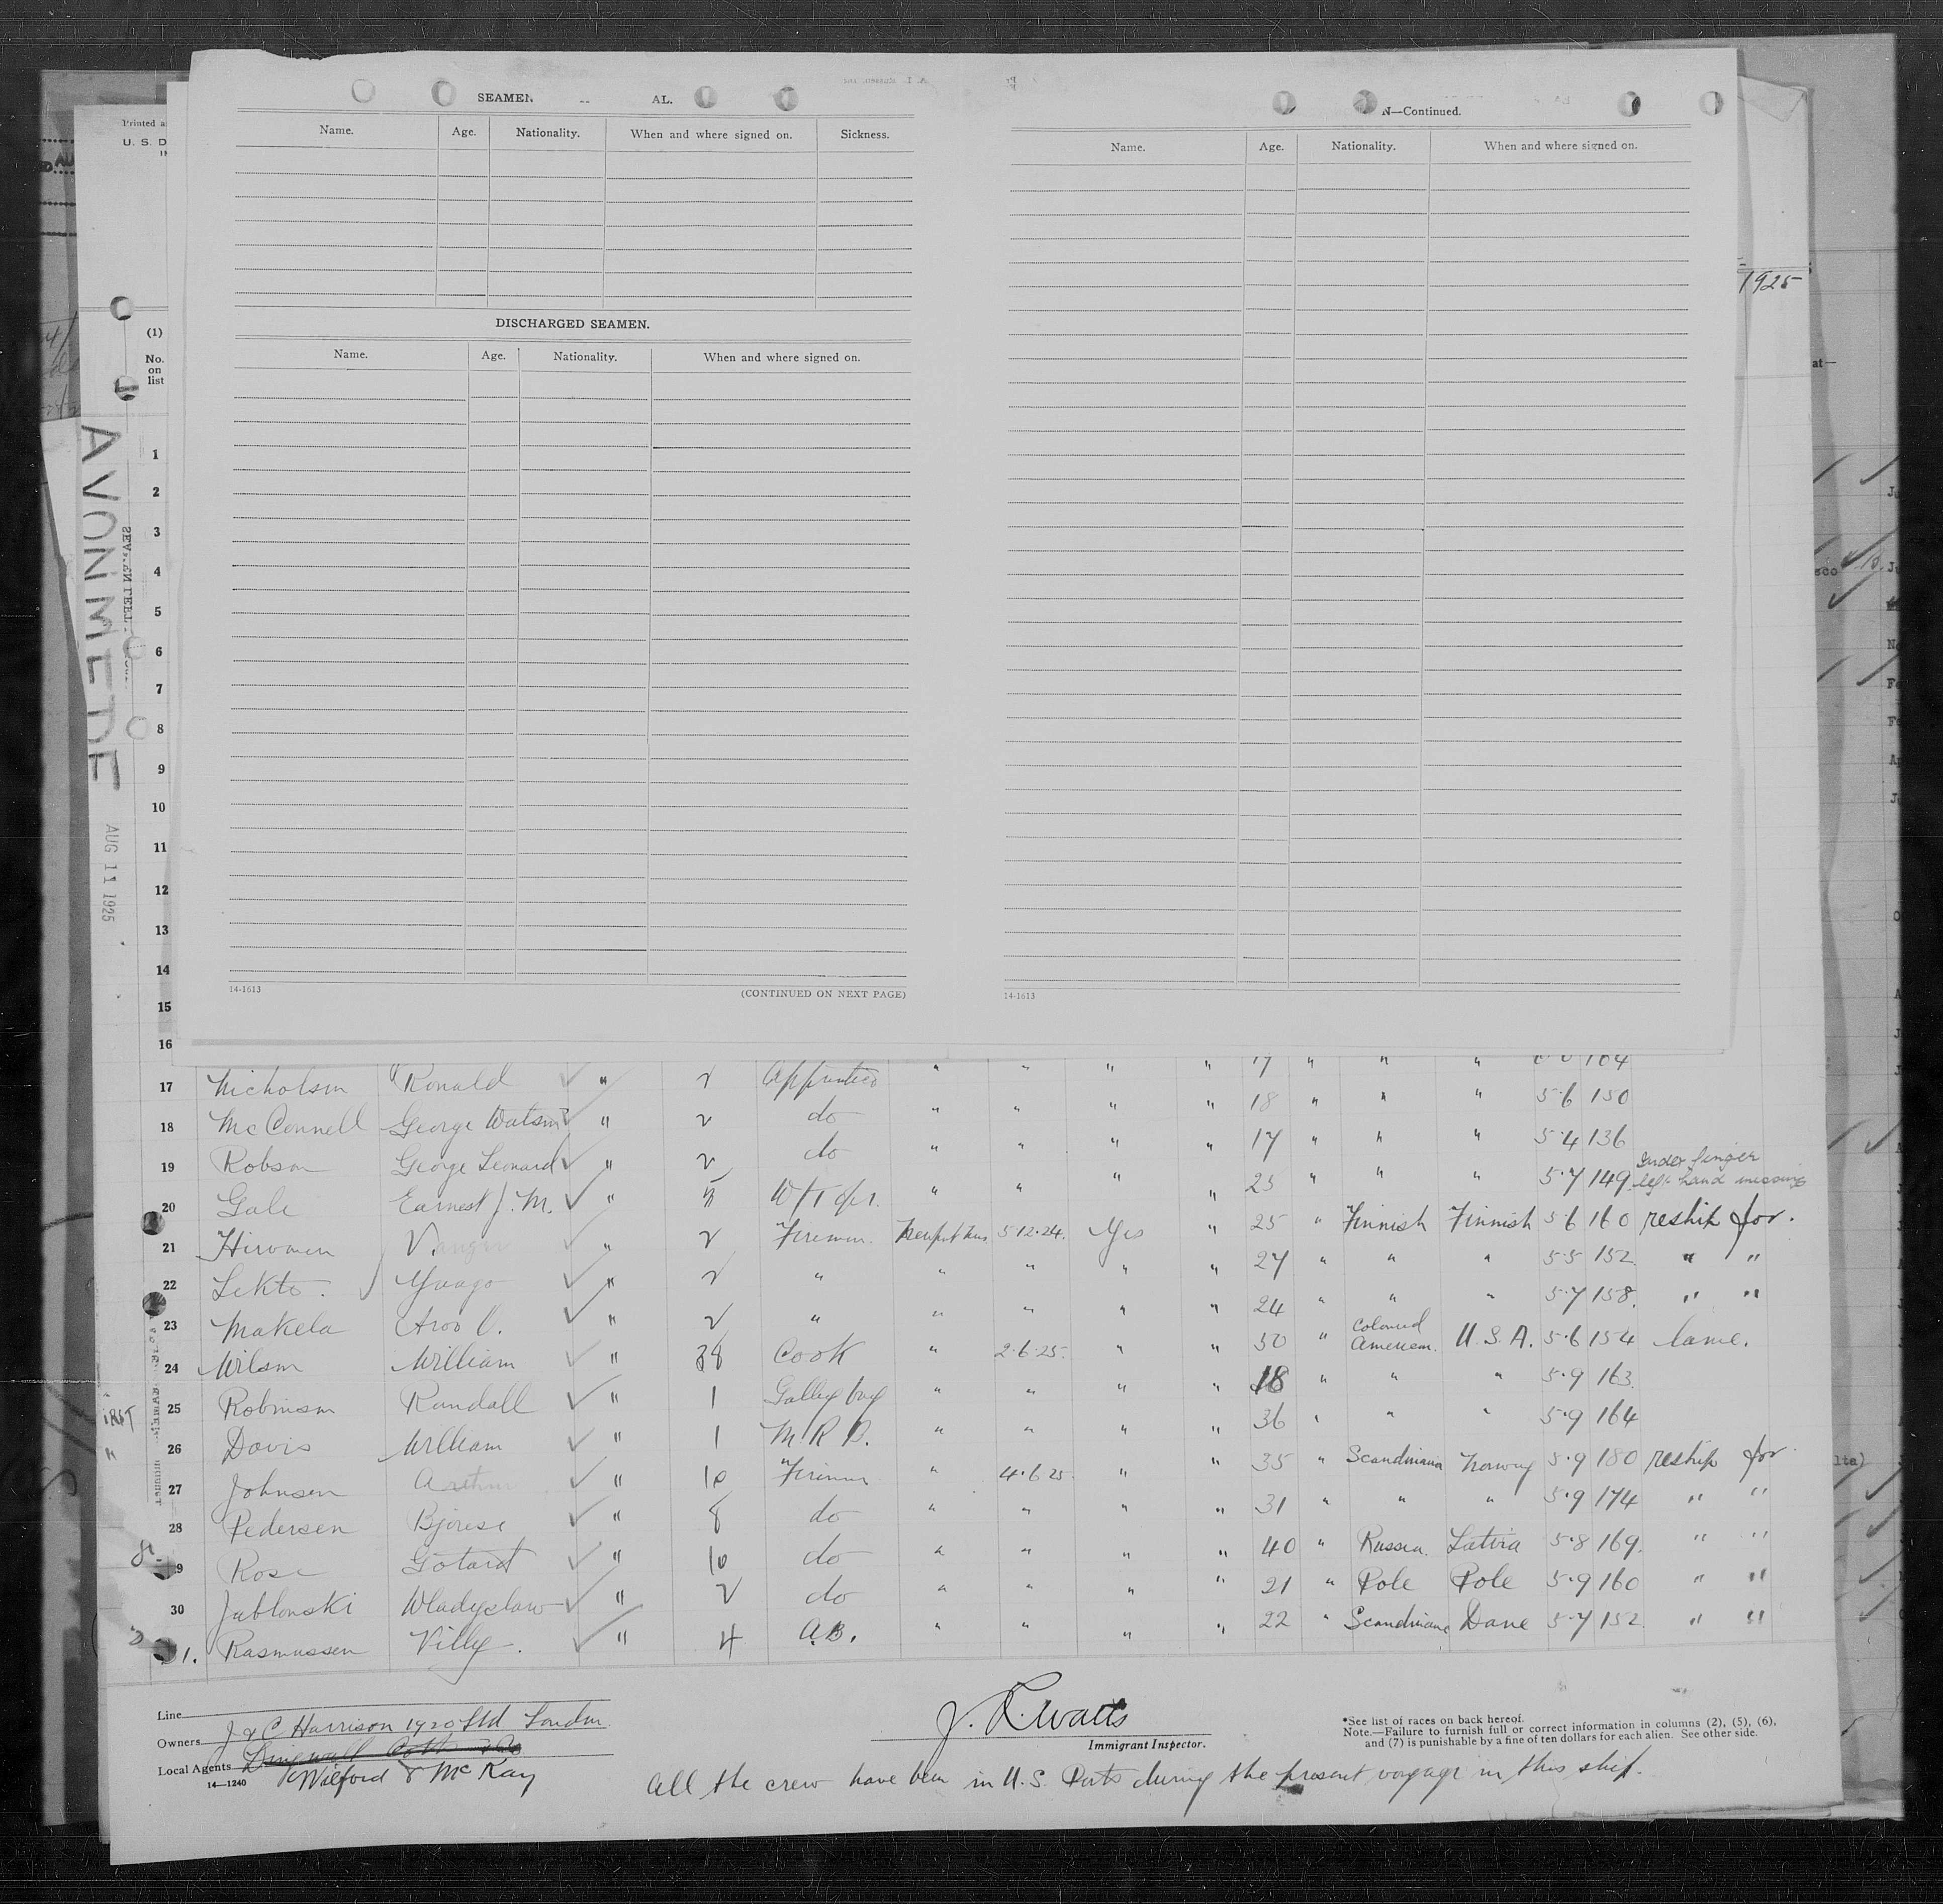 SEAMEN AL.
Name. Age. Nationality. When and where signed on. Sickness.
DISCHARGED SEAMEN.
Name. Age. Nationality. When and where signed on.
14-1613 (CONTINUED ON NEXT PAGE)
N—Continued.
Name. Age. Nationality. When and where signed on.
14-1613
Printed
U. S. D
1925
at—
(1)
No.
on
list
AVONMEDE
AUG 11 1925
1
2
3
4
5
6
7
8
9
10
11
12
13
14
15
16
17 Nicholson Ronald " 2 Apprentice " " " " 17 " " " 164
18 McConnell George Watson " 2 do " " " " 18 " " " 5·6 150
19 Robson George Leonard " 2 do " " " " 17 " " " 5·4 136
20 Gale Earnest J. M. " W/T opr. " " " " 25 " " " 5·7 149 index finger left hand missing
21 Hirvonen " 2 Firemen 5·12·24. Yes " 25 " Finnish Finnish 5·6 160 reship for.
22 Lekto. Yaago " 2 " " " " " 27 " " " 5·5 152 " "
23 Makela " 2 " " " " " 24 " " " 5·7 158. " "
24 Wilson William " 38 Cook " 2·6·25. " " 50 " Coloured American. U.S.A. 5·6 154 lame.
25 Robinson Randall " 1 Galley boy " " " " 18 " " " 5·9 163.
26 Davis William " 1 M R B. " " " " 36 " " " 5·9 164
27 Johnsen " 10 Firemen " 4·6·25 " " 35 " Scandinavia Norway 5·9 180 reship for
28 Pedersen " 8 do " " " " 31 " " " 5·9 174 " "
9 Rose Gotard " 10 do " " " " 40 " Russia. Latvia 5·8 169. " "
30 Jablonski Wladyslaw " 2 do " " " " 21 " Pole Pole 5·9 160 " "
1. Rasmussen Villy. " 4 A.B. " " " " 22 " Scandinavia Dane 5·7 152 " "
Line
Owners J & C Harrison 1920 Ltd London
Local Agents Dingwall Cotts & Co
14—1240 Wilford & McKay
J. R. Watts
Immigrant Inspector.
*See list of races on back hereof.
Note.—Failure to furnish full or correct information in columns (2), (5), (6),
and (7) is punishable by a fine of ten dollars for each alien. See other side.
All the crew have been in U.S. Ports during the present voyage in this ship.